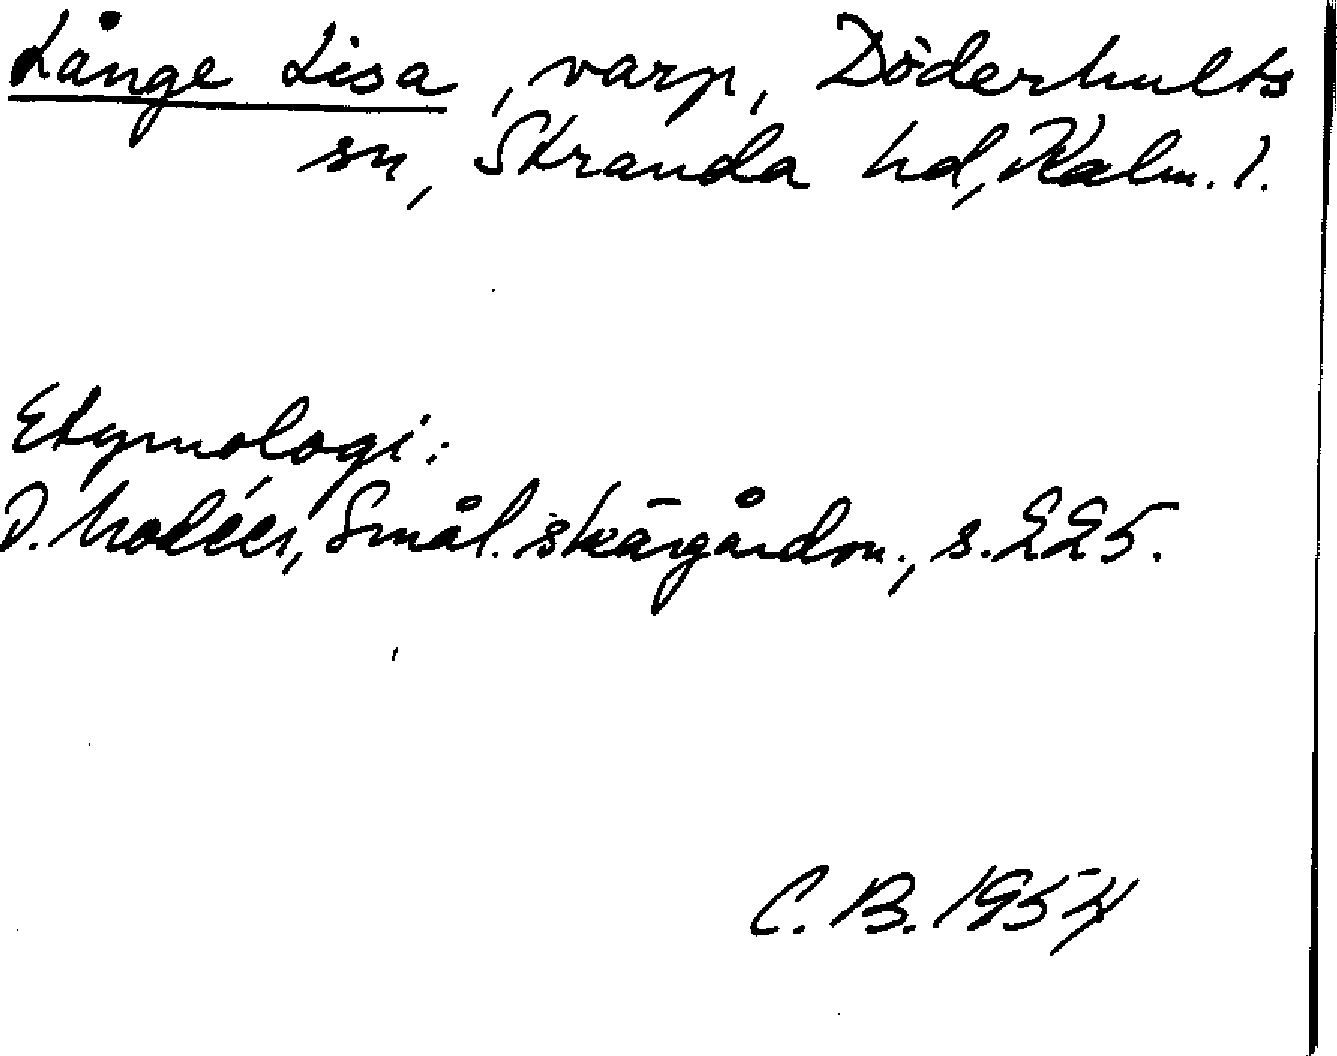 Långe Lisa, varp, Döderhults
sn, Stranda hd, Kalm. l.
Etymologi:
I. Modéer, Smål. skärgårdsn., s. 225.
C. B. 1954